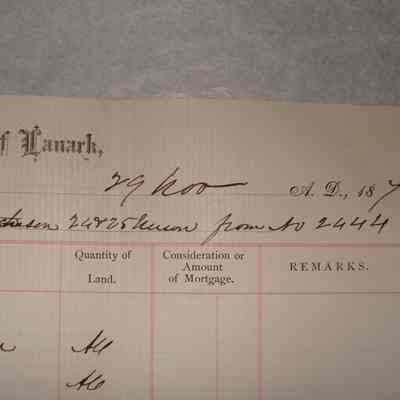 of Lanark,
29 Nov A. D., 187
24 & 25 from No 2444
Quantity of Land. Consideration or Amount of Mortgage. REMARKS.
All
All